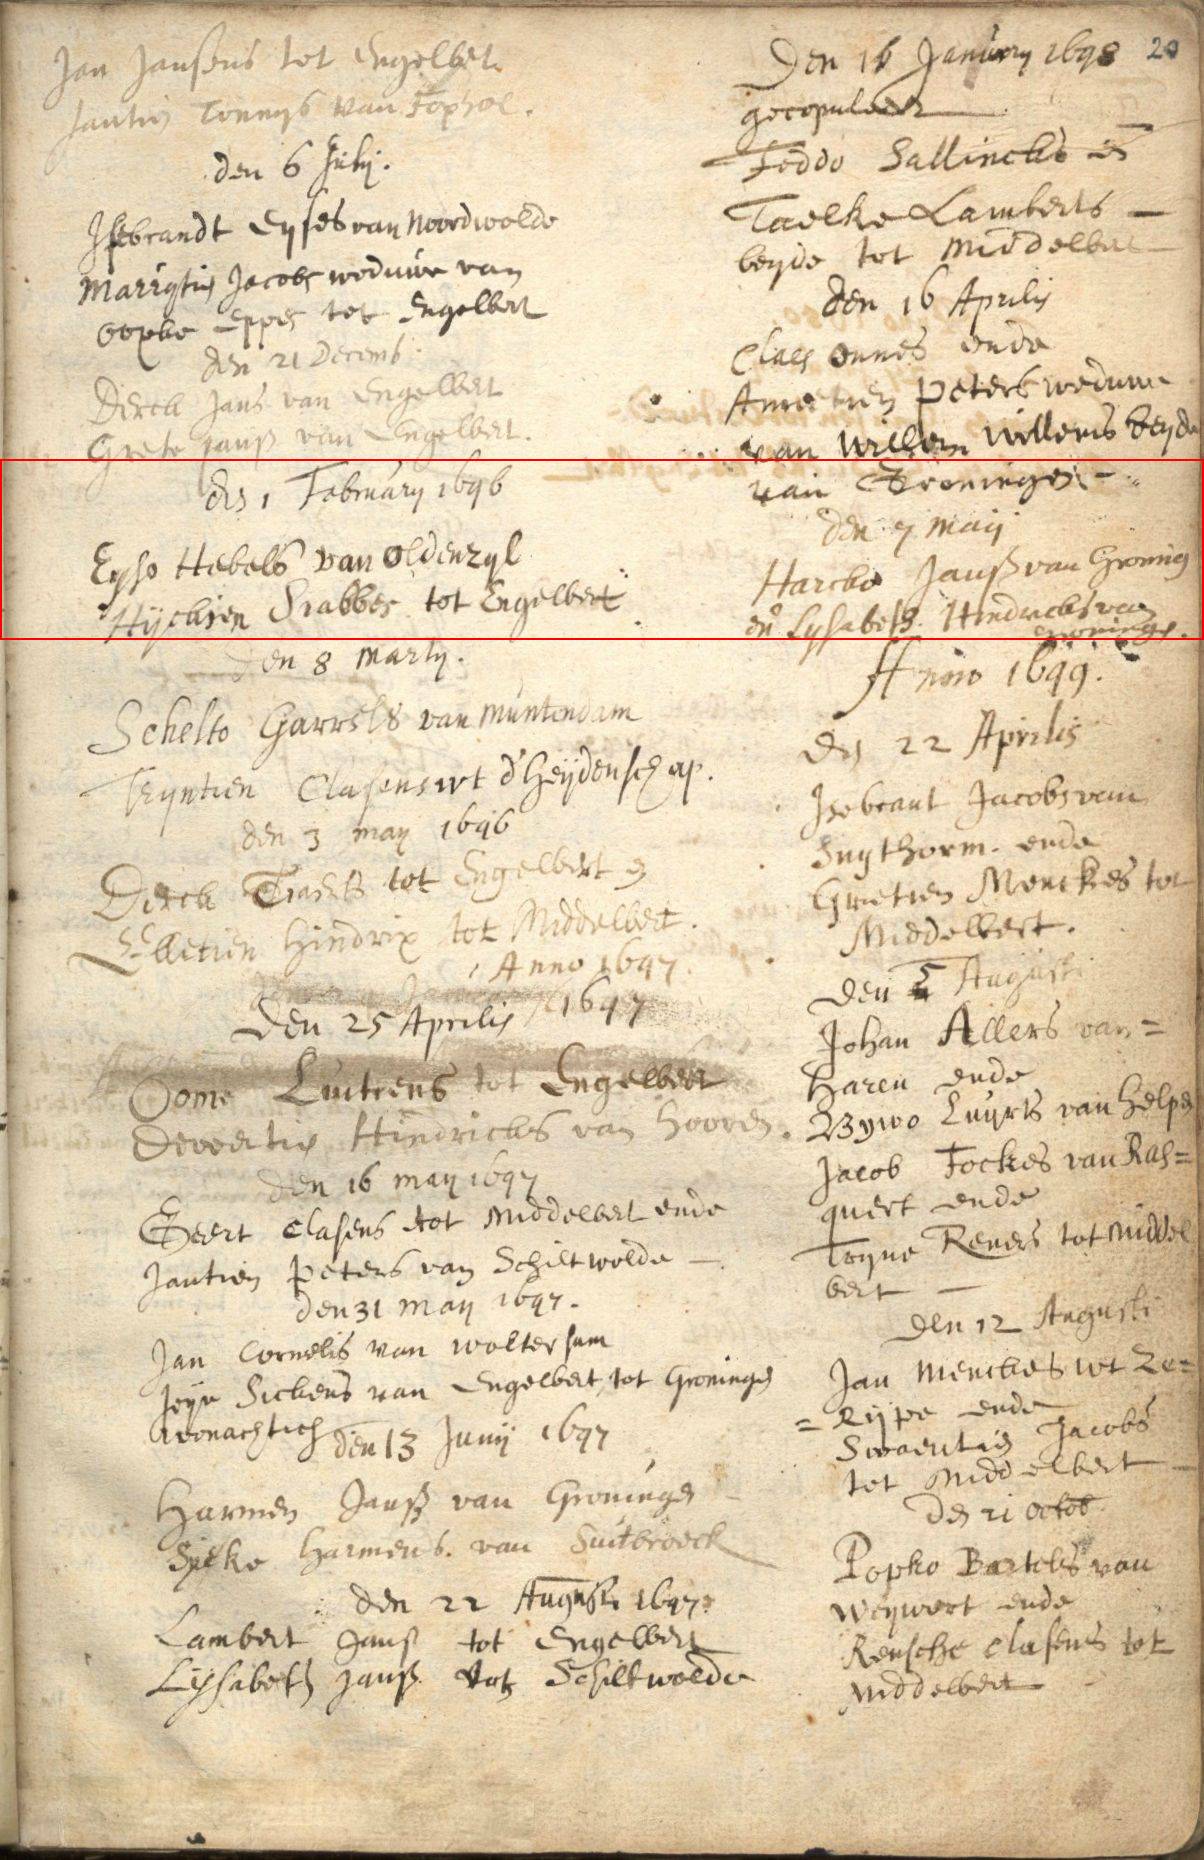 Jan Jansens tot Engelbert.
Jantien Tonnijs van Foxhol.
den 6 Julij.
Isebrandt Eyses van Noordwolde
Marrigtien Jacobs weduwe van
Eppes tot Engelbert
den 21 Decemb:
Derck Jans van Engelbert
Grete Janss van Engelbert.
den 1 February 1696
Eyso Hebels van Oldenzyl
Hijckien Brabbes tot Engelbert
den 8 Martij.
Schelto Garrels van Muntendam
Trijntien Clasens wt d'Heijdenschap.
den 3 may 1696
Derck tot Engelbert en
Elletien Hindrix tot Middelbert.
Anno 1697
den 25 Aprilis 1697
Oome Luitiens tot Engelbert
Hindricks van Hooven.
den 16 may 1697
Geert Clasens tot Middelbert ende
Jantien Peters van Schiltwolde —
den 31 may 1697.
Jan Cornelis van Woltersum
Sickens van Engelbert, tot Groningen
woonachtich
den 13 Junij 1697
Harmen Janss van Groningen
Harmens. van Suitbroeck
den 22 Augusti 1697.
Lambert Janss tot Engelbert
Lijsabeth Janss tot Schiltwolde
20
Den 16 January 1698
gecopuleert
Feddo Sallincks en
Taelke Lamberts —
beyde tot Middelbert —
den 16 Aprilis
Claes Onnes ende
Annetien Peters weduwe
van Willem Willems beyde
van Groningen —
den 7 Maij
Harcko Janss van Groningen
en Lysabeth Hindricks van
Groningen.
Anno 1699.
den 22 Aprilis
Isebrant Jacobs van
Suythorm. ende
Grietien Menckes tot
Middelbert.
Den 5 Augusti
Johan Allers van=
Haren ende
Luyrts van Helpen
Jacob Fockes van Ras=
quert ende
Tryne Reners tot Middel
bert —
den 12 Augusti
Jan Menckes wt Ze=
=Rijpe ende
Swaentien Jacobs
tot Middelbert —
den 21 octob.
Popko Bartels van
Weywert ende
Rensche Clasens tot
Middelbert